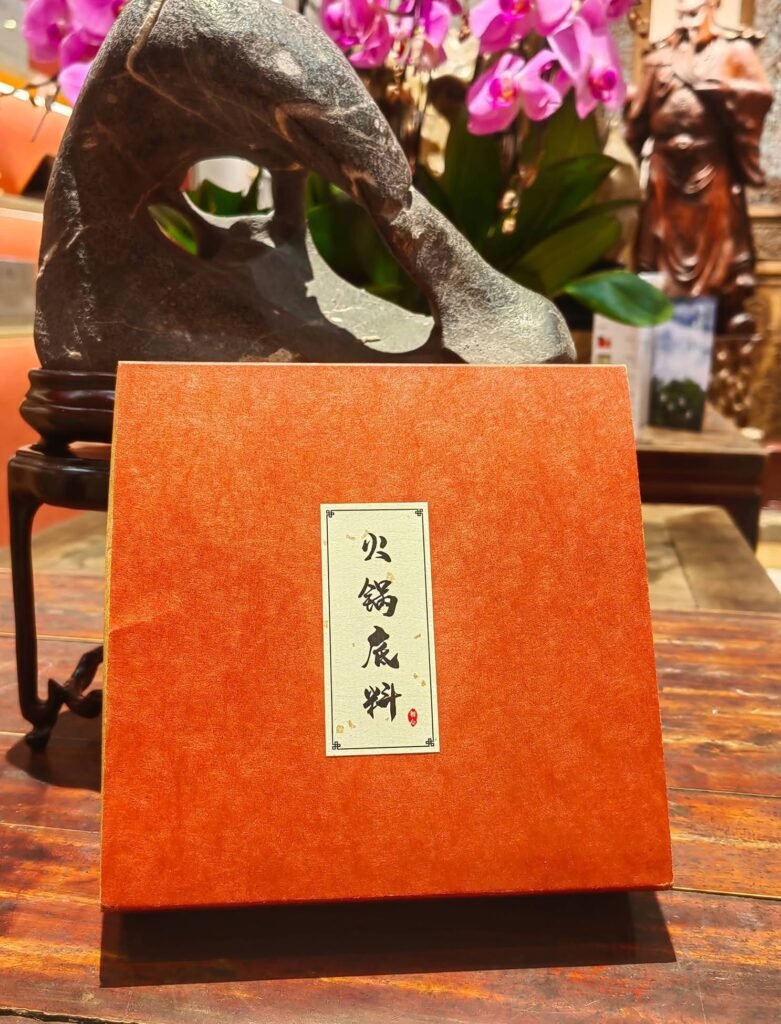 火锅底料